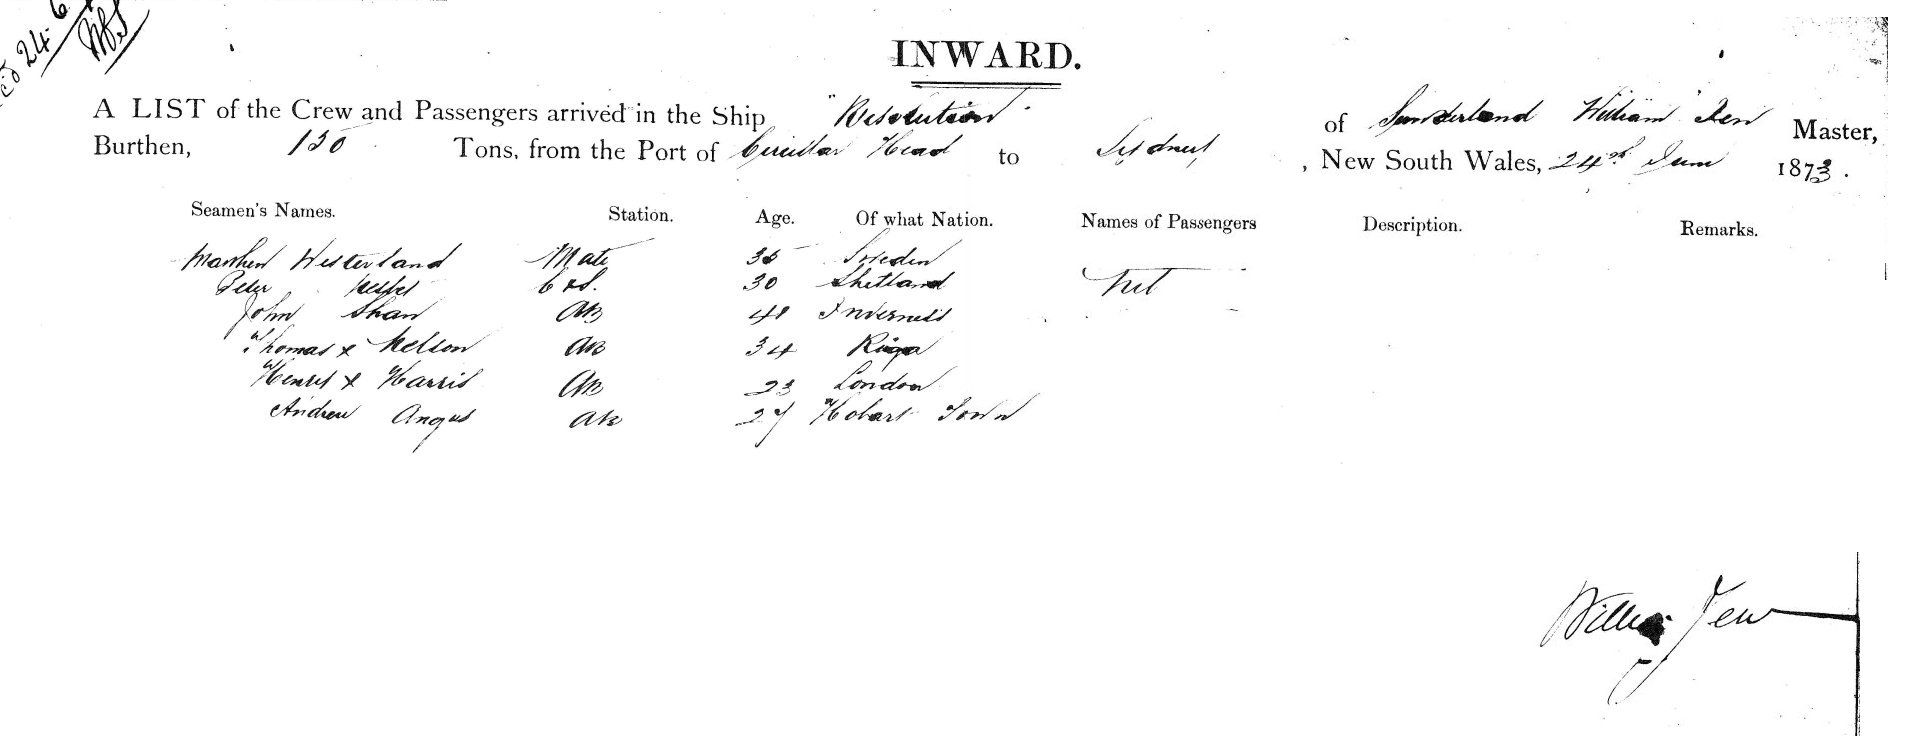 24 6
INWARD.
A LIST of the Crew and Passengers arrived in the Ship "Resolution" of Sunderland William Jew Master,
Burthen, 130 Tons, from the Port of Circular Head to Sydney, New South Wales, 24th June 1873.
Seamen's Names. Station. Age. Of what Nation. Names of Passengers Description. Remarks.
Westerland Mate 35 Sweden
Peter C & S. 30 Shetland Nil
John Shaw AB Inverness
Thomas x Nelson AB 34 Riga
Henry x Harris AB 23 London
Andrew Angus AB 27 Hobart Town
William Jew